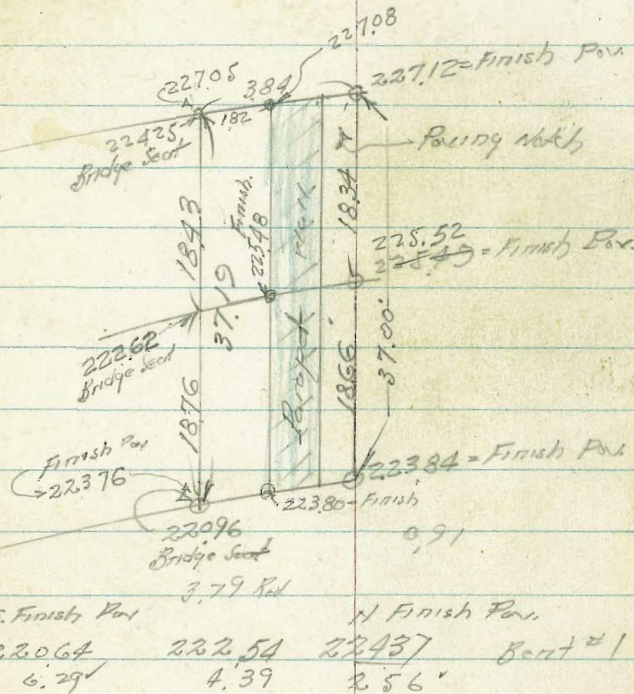 227.08
22705
3.84
227.12 = Finish Pav.
182
22425
Bridge Seat
Paving Notch
1834
Finish
22548
1843
225.52
= Finish Pav.
37.19
Parapet Wall
22262
Bridge Seat
1866
37.00'
1876
Finish Pav
22376
223.84 = Finish Pav
223.80 - Finish
22096
Bridge Seat
0.91
3.79 Rod
S. Finish Pav
N Finish Pav.
22064
222.54
22437
Bent #1
6.29✓
4.39
2.56✓